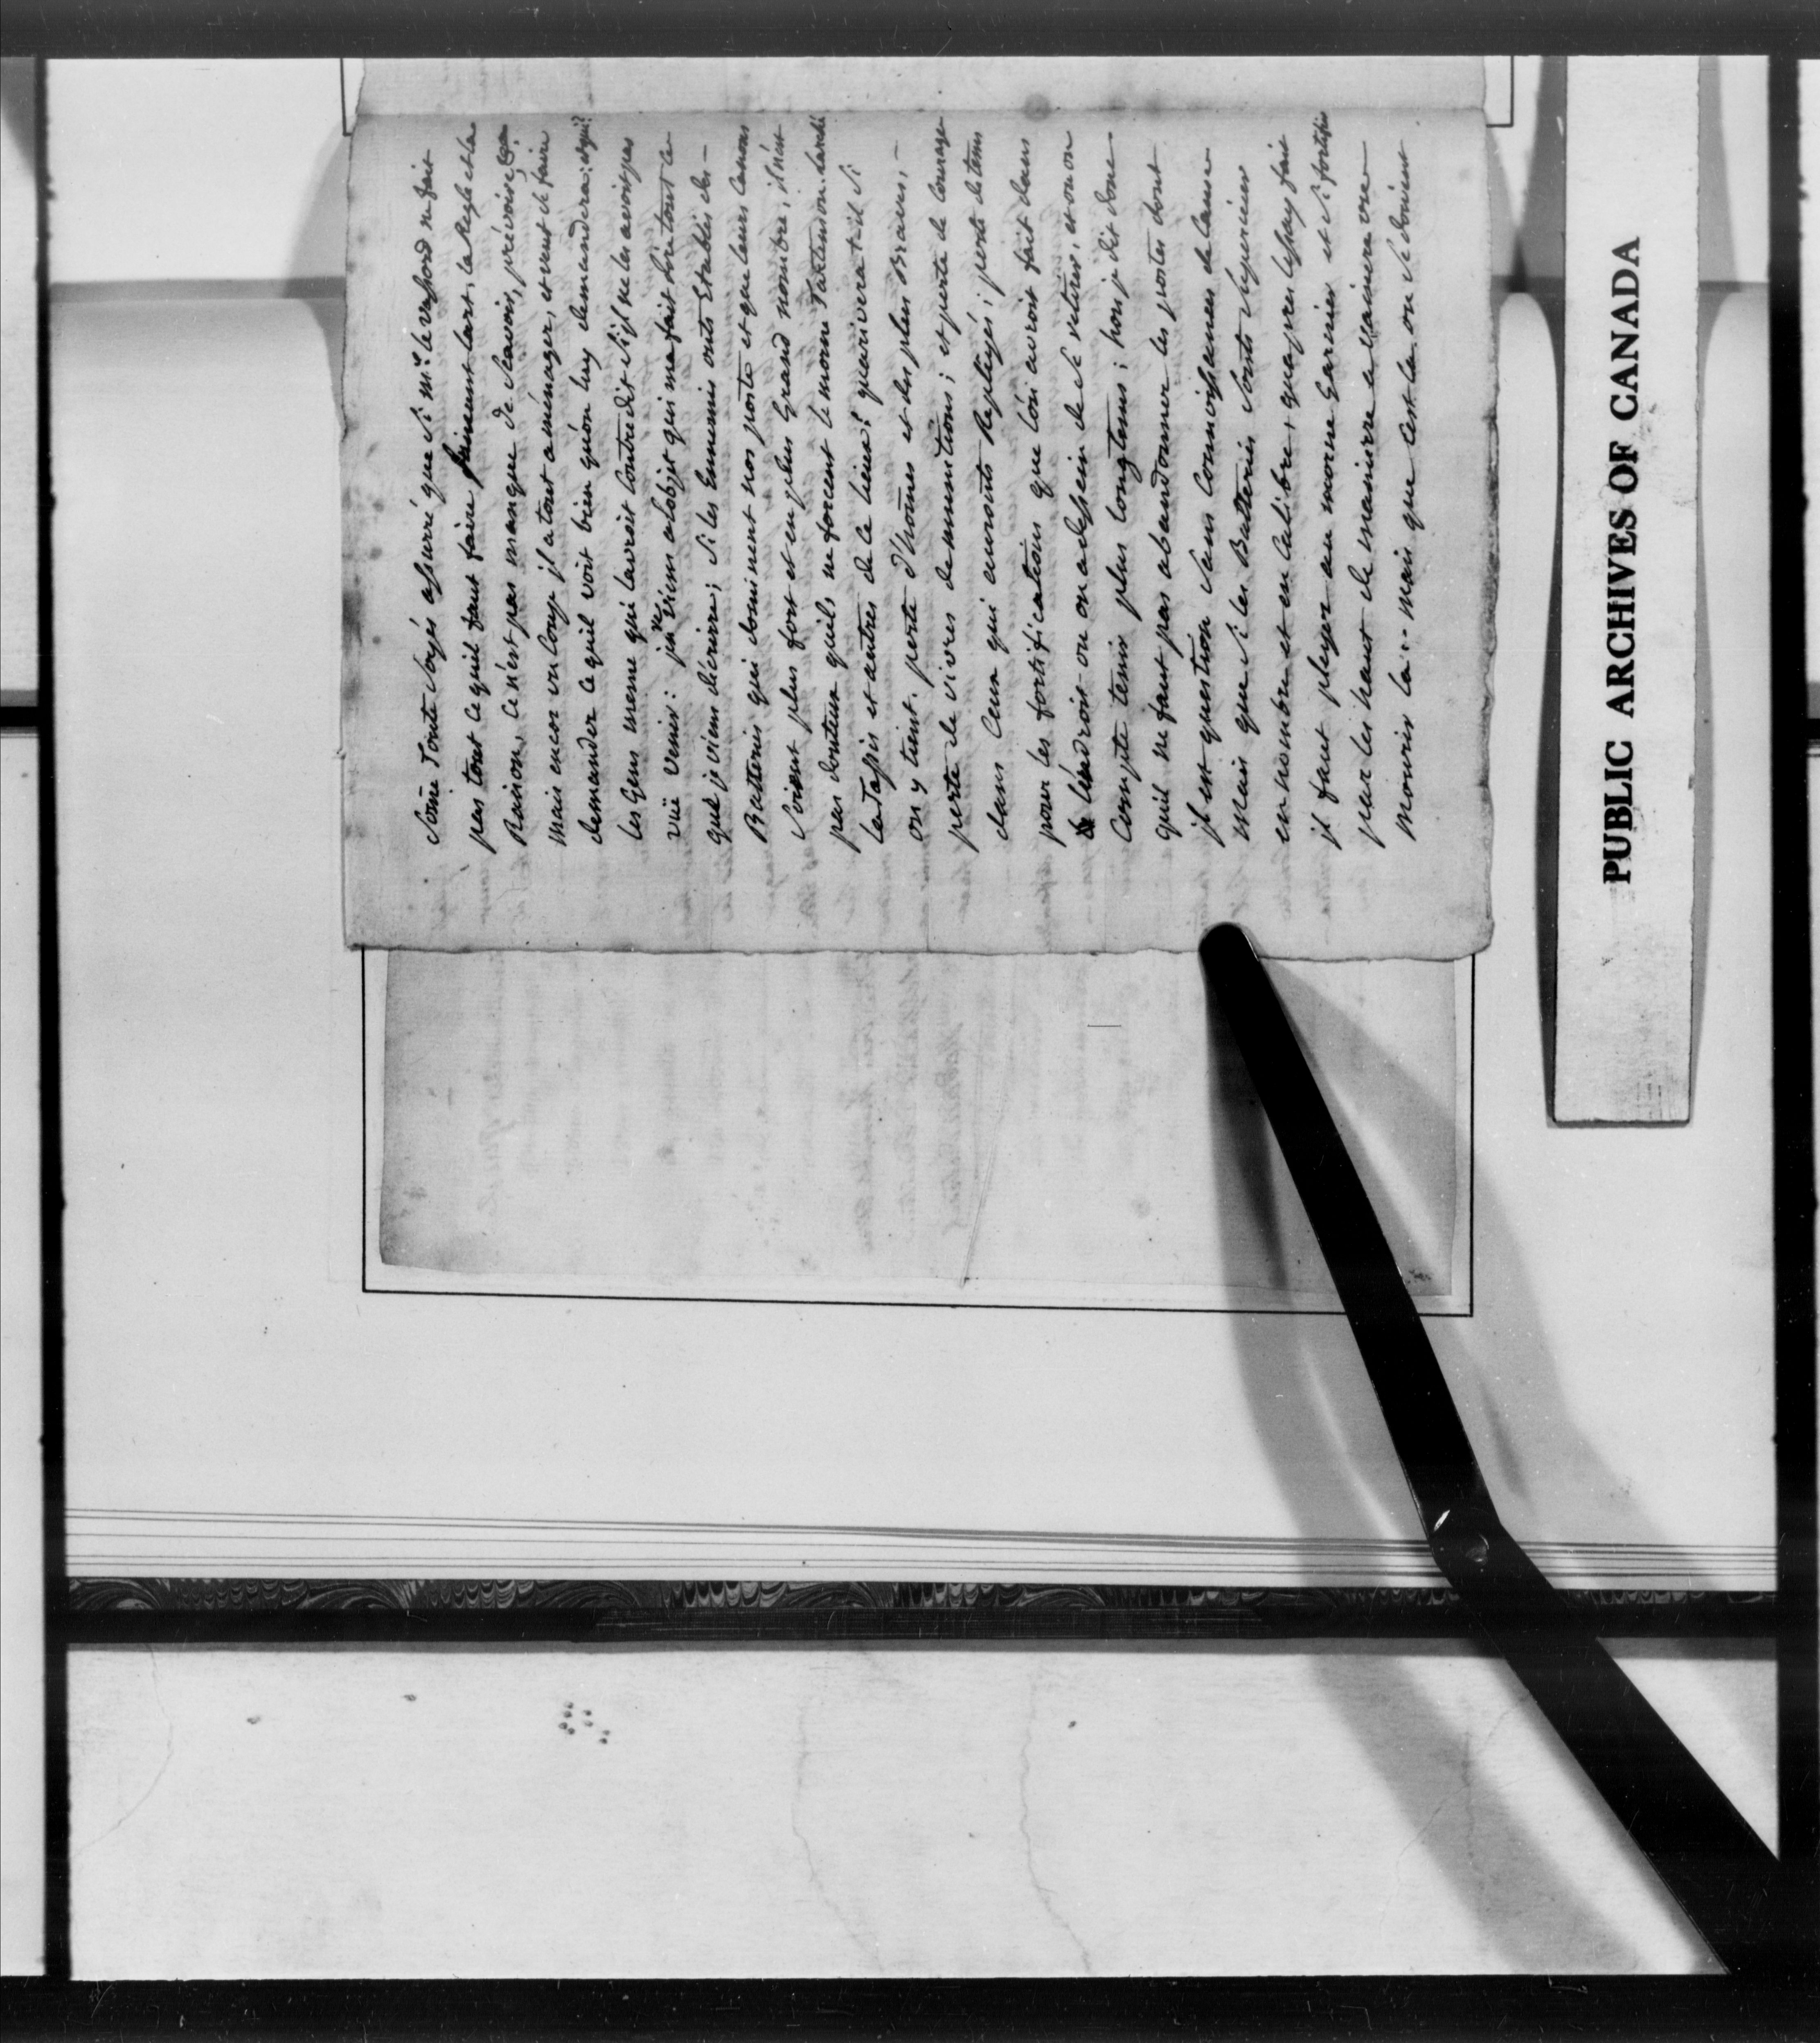 Somë Toute Soyés assurré que si Mr. le vassord ne fait
pas tout ce quil faut faire suivant lart, la Regle et la
Raison, ce n'est pas manque de Scavoir, prévoire,
mais encor un Coup jl a tout a ménager, et veut ce faire
demander ce quil voit bien qu'on luy demandera: et qui?
les Gens meme qui lauroit Contredit s'jl ne les avoit pas
vüe venir: je reviens alobjet qui ma fait foitout ce
que je viens décrirre; si les Ennemis onts Etablis des -
Batteries qui dominent nos poste et que leurs Canons
Soient plus fort et en plus Grand nombre, il n'est
pas douteux quils ne forcent le morne Tartenson. Lardi
la Tassis et autres de ce lieux? quarivera t-il si
on y tient. perte d'hômes et des plus Braves, -
perte de vivres de munitions; et perte de Courage
dans Ceux qui auroits Repliyés; perte de tems
pour les fortifications que lón auroit fait dans
Lendroit ou on a dessein de se retirer, et ou on
Compte tenir plus longtems; hors je dit donc -
quil ne faut pas abandonner les postes dont
jl est question sans Connoissances de Cause
mais que si les Batteries sonts superieures
en nombre et en Calibre, quapres lessay fait
jl faut ployer au morne Garnier et si fortifier
par les haut de manierre a vaincre ou -
mourir la:- mais que Cest la ou se doivent
PUBLIC ARCHIVES OF CANADA